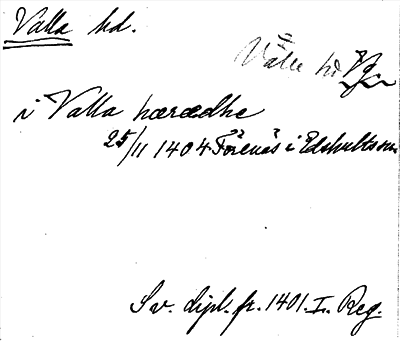 Valla hd.
Välle hd Vg.
i Valla hæredhe
25/11 1404 Förenäs i Edshults sn
Sv. dipl. fr. 1401. I. Reg.